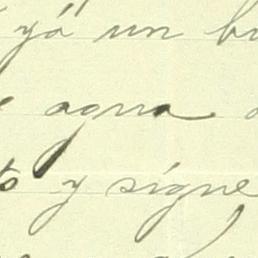 yá un
agua
y sigue